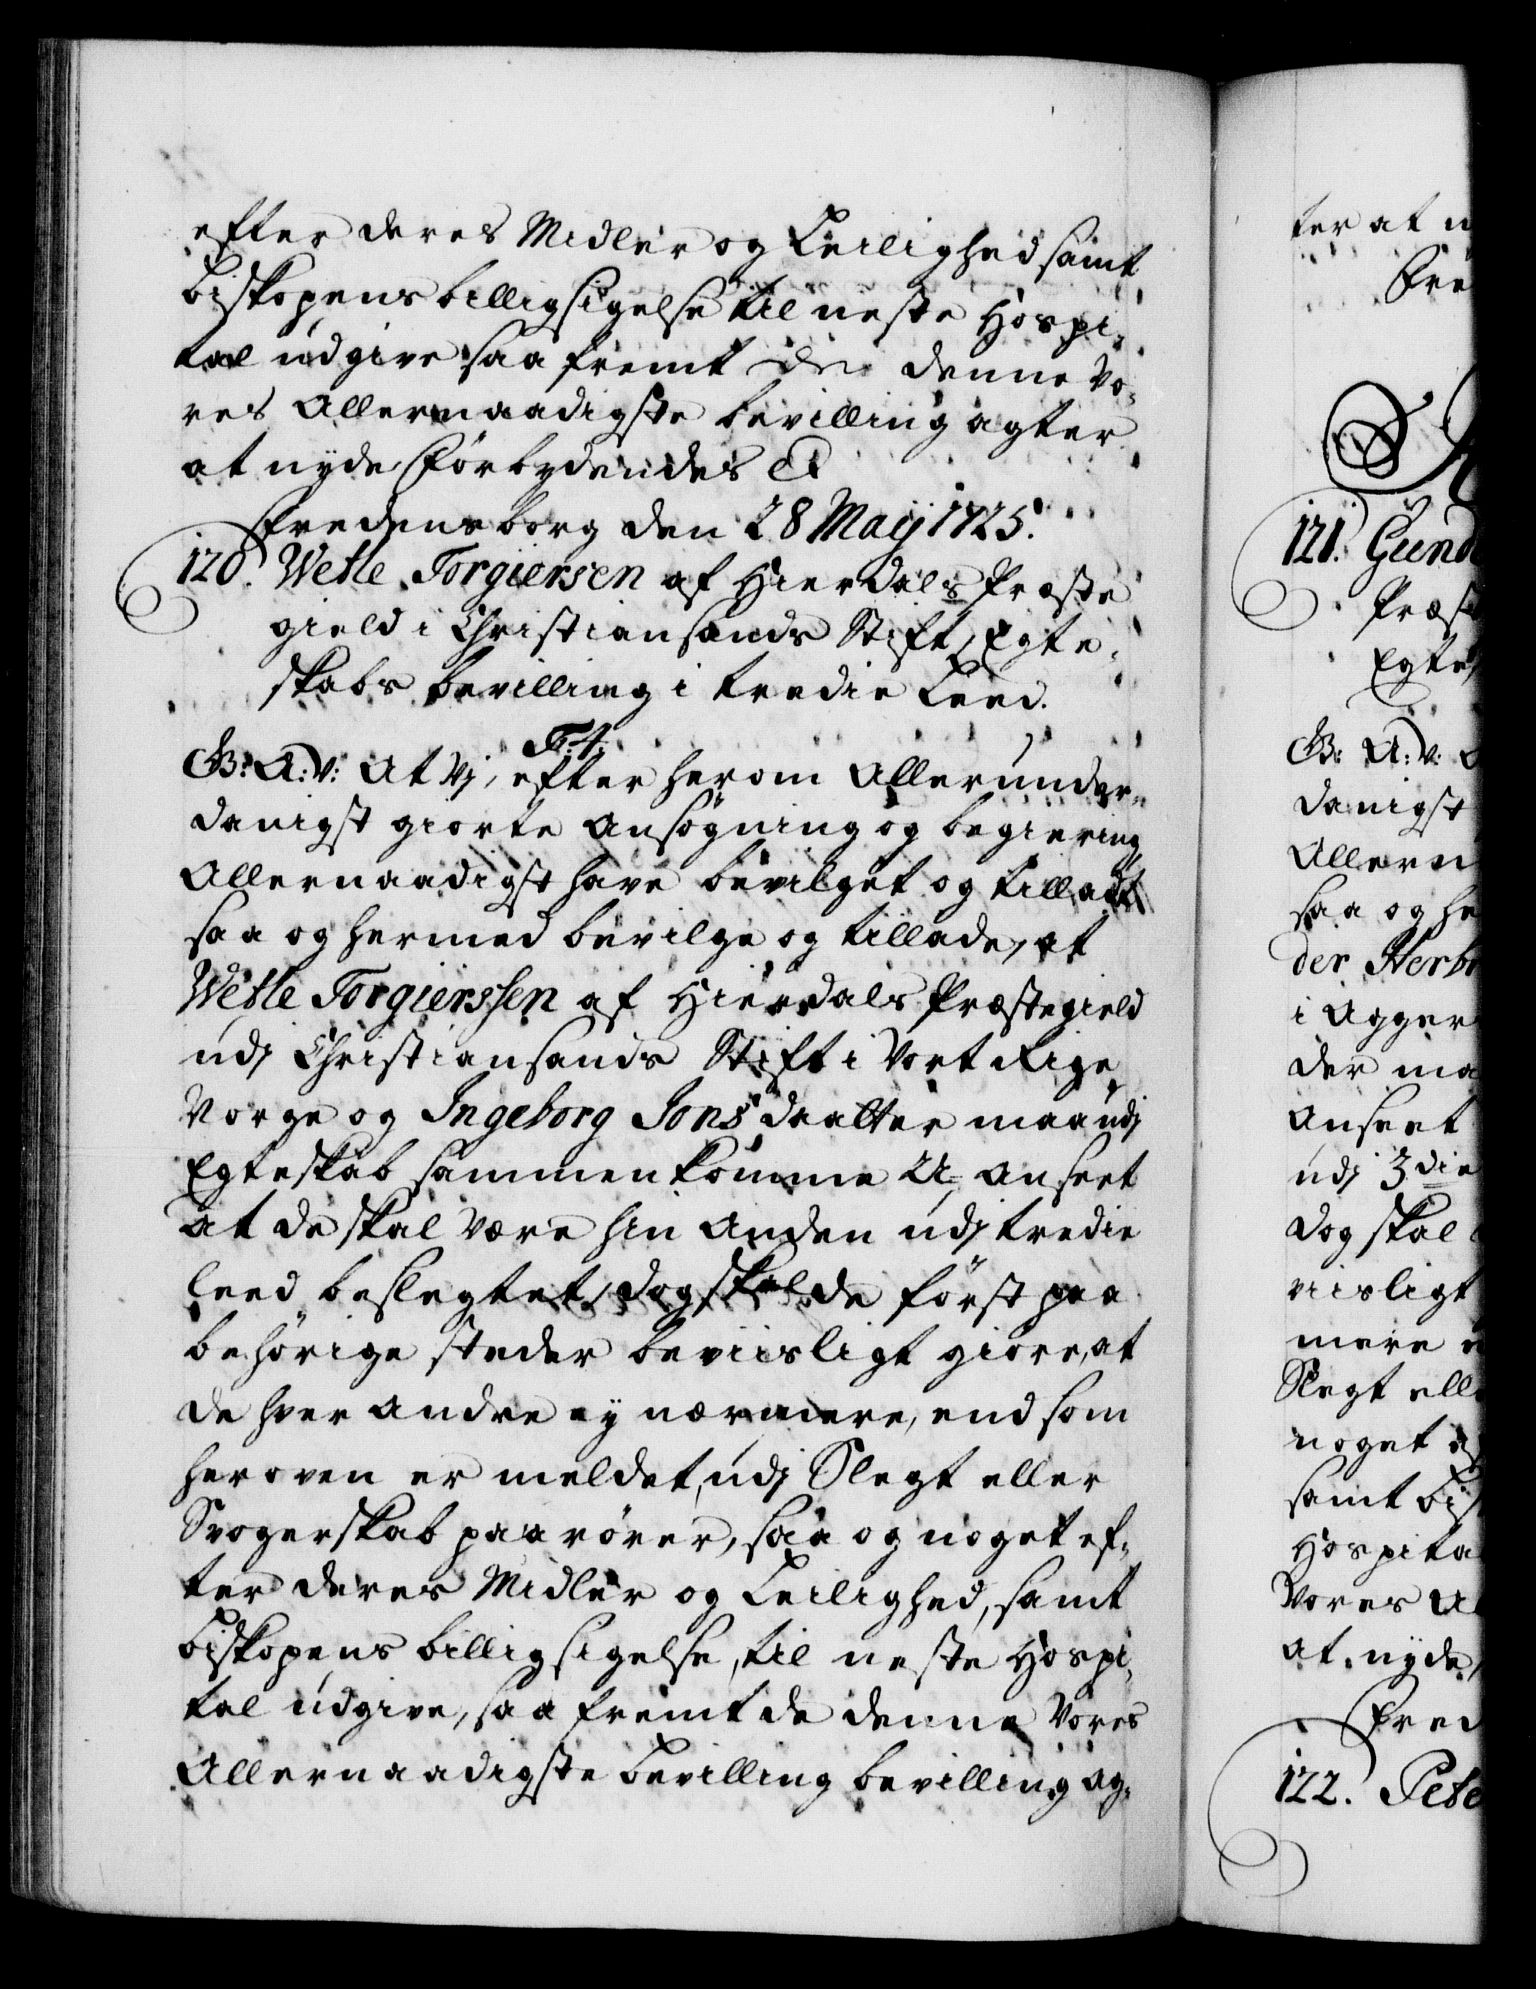 efter deres Midler og Leilighed samt
biskopens billigsigelse til neste Hospi-
tal udgive saa fremt de denne Vo-
res Allernaadigste bevilling agter
at nyde, Forbydendes &
Fredensborg den 28 Maij 1725.
120. Wetle Torgiersen af Hierdals Præste
gield i Christiansands Stift, Egte-
skabs bevilling i tredie Leed.
F: 4.
G: A: V: At Vj, efter herom Allerunder-
danigst giorte Ansøgning og begiering,
Allernaadigst have bevilget og tilladt
saa og hermed bevilge og tillade, at
Wetle Torgierssen af Hierdals Præstegield
udj Christiansands Stift i Vort Rige
Norge og Ingeborg Jons daatter maa udj
Egteskab sammenkomme U-anseet
at de skal være hin anden udj tredie
Leed beslegtet, dog skal de først paa
behørige steder beviisligt giøre, at
de hver andre ey nærmere, end som
her oven er meldet, udj Slegt eller
Svogerskab paarører, saa og noget ef-
ter deres Midler og Leilighed, samt
biskopens billigsigelse, til neste Hospi-
tal udgive, saa fremt de denne Vores
Allernaadigste bevilling bevilling ag-
ter at
Fre
121. Gund
Præst
Egte
G: A: V:
danigst
Allern
saa og he
der Herb
i Agger
der ma
Anseet
udj 3die
dog skal
viisligt
mere
Slegt ell
noget
samt bis
Hospita
Vores Al
at nyde,
Fred
122. Pete